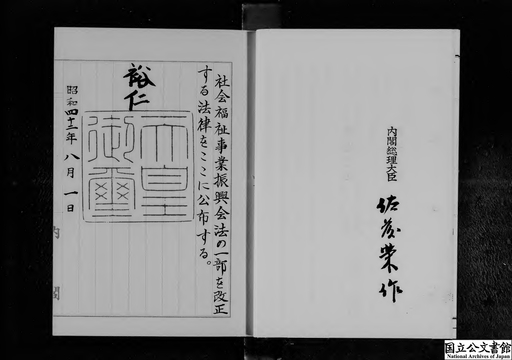 社会福祉事業振興会法の一部を改正
する法律をここに公布する。
裕仁
天皇
御璽
昭和四十二年八月一日
内閣
内閣総理大臣
佐藤榮作
国立公文書館
National Archives of Japan